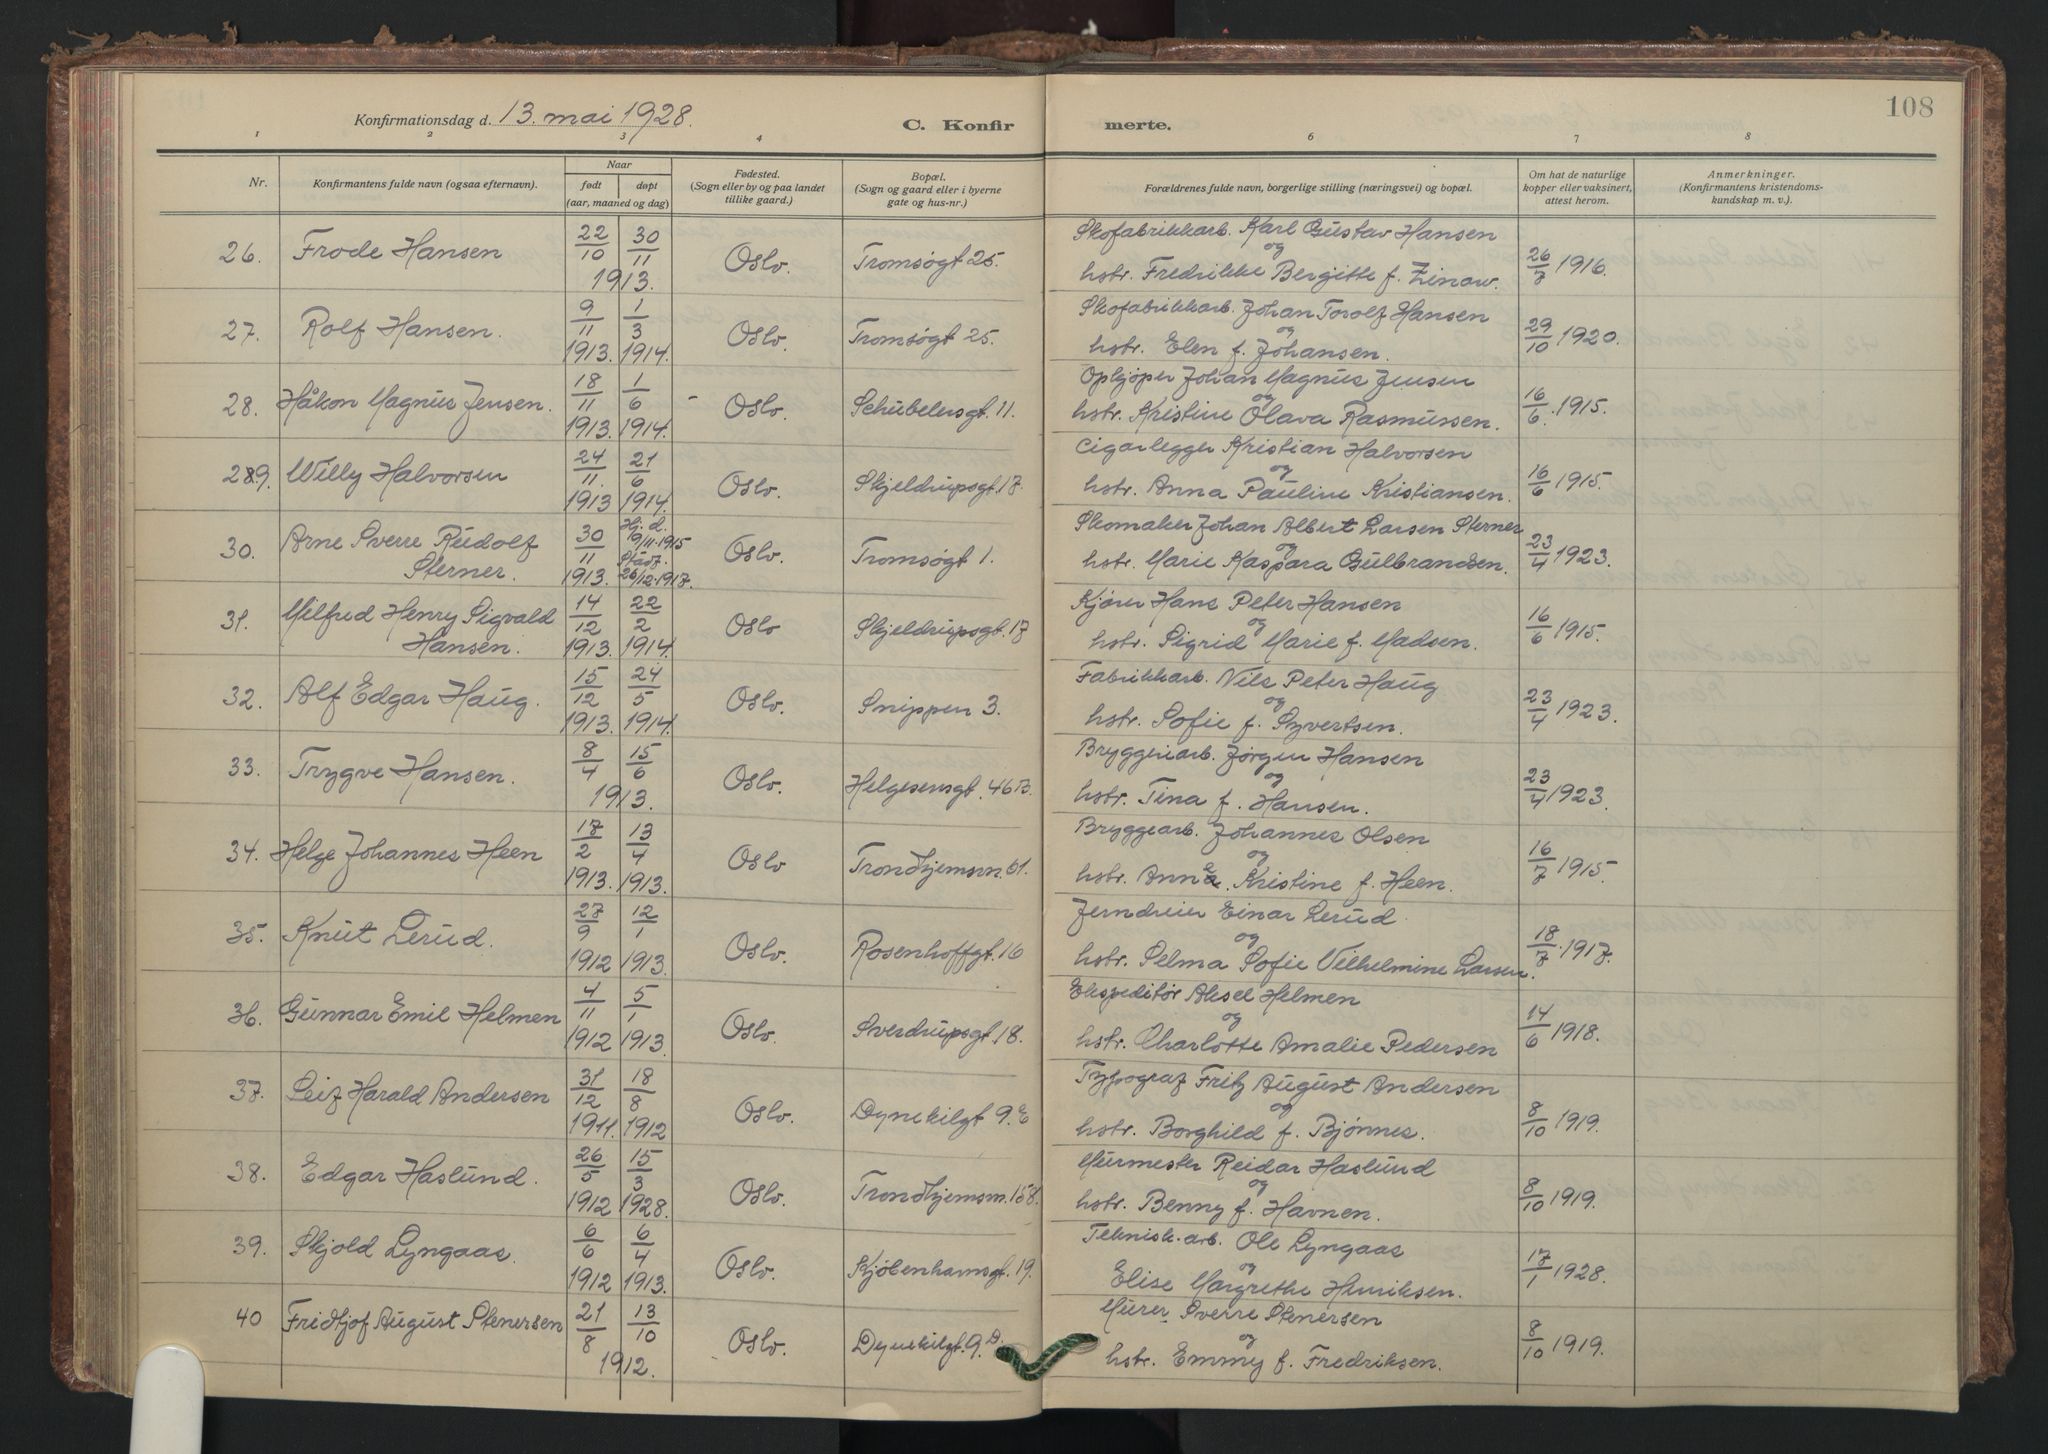 108
Konfirmationsdag d. 13. mai 1928.
C. Konfir merte.
1 2 3 4 6 7 8
Nr. Konfirmantens fulde navn (ogsaa efternavn). Naar født døpt (aar, maaned og dag) Fødested. (Sogn eller by og paa landet tillike gaard.) Bopæl. (Sogn og gaard eller i byerne gate og hus-nr.) Forældrenes fulde navn, borgerlige stilling (næringsvei) og bopæl. Om hat de naturlige kopper eller vaksinert, attest herom. Anmerkninger. (Konfirmantens kristendoms-kundskap m. v.).
26. Frode Hansen 22/10 30/11 1913. Oslo. Tromsøgt 25. Skofabrikkarb. Karl Gustav Hansen og hstr. Fredrikke Bergitte f. Zinow. 26/7 1916.
27. Rolf Hansen. 9/11 1913. 1/3 1914. Oslo. Tromsøgt 25. Skofabrikkarb. Johan Torolf Hansen og hstr. Elen f. Johansen. 29/10 1920.
28. Håkon Magnus Jensen. 18/11 1913. 1/6 1914. Oslo. Schübelersgt. 11. Opkjøper Johan Magnus Jensen og hstr. Kristine Olava Rasmussen. 16/6. 1915.
289. Willy Halvorsen 24/11. 1913 21/6 1914. Oslo. Skjeldrupsgt. 17. Cigarlegger Kristian Halvorsen og hstr. Anna Pauline Kristiansen. 16/6 1915.
30. Arne Sverre Rudolf Sterner. 30/11 1913. Hj. d. 19/11-1915 Stadf. 26/12-1917. Oslo. Tromsøgt 1. Skomaker Johan Albert Larsen Sterner og hstr. Marie Kaspara Gulbrandsen. 23/4 1923.
31. Milfred Henry Sigvald Hansen. 14/12 1913. 22/2 1914. Oslo Skjeldrupsgt. 17 Kjører Hans Peter Hansen og hstr. Sigrid Marie f. Madsen. 16/6 1915.
32. Alf Edgar Haug. 15/12 1913. 24/5 1914. Oslo. Snippen 3. Fabrikkarb. Nils Peter Haug og hstr. Sofie f. Syvertsen. 23/4 1923.
33. Trygve Hansen. 8/4 15/6 1913. Oslo. Helgesensgt. 46B. Bryggeriarb. Jørgen Hansen og hstr. Tina f. Hansen. 23/4 1923.
34. Helge Johannes Heen 17/2 1913. 13/4 1913. Oslo Trondhjemsvn. 61. Bryggearb. Johannes Olsen og hstr. Anne Kristine f. Heen. 16/7 1915.
35. Knut Lerud. 27/9 1912 12/1 1913. Oslo. Rosenhoffgt. 16 Jerndreier Einar Lerud. og hstr. Selma Sofie Vilhelmine Larsen. 18/7. 1917.
36. Gunnar Emil Helmen 4/11 1912 5/1 1913. Oslo. Sverdrupsgt. 18. Ekspeditør Aksel Helmen og hstr. Charlotte Amalie Pedersen 14/6 1918.
37. Leif Harald Andersen 31/12 1911. 18/8 1912 Oslo. Dynekilgt 9.E Typograf Fritz August Andersen og hstr. Borghild f. Bjønnes. 8/10 1919.
38. Edgar Haslund. 26/5 1912 15/3 1928. Oslo. Trondhjemsvn. 158. Murmester Reidar Haslund og hstr. Benny f. Havnen. 8/10 1919.
39. Skjold Lyngaas. 6/6 1912 6/4 1913. Oslo. Kjøbenhavnsgt. 19. Teknisk-arb. Ole Lyngaas og Elise Margrethe Henriksen. 17/1 1928.
40 Fridtjof August Stenersen 21/8 13/10 1912. Oslo. Dynekilgt. 9.D. Murer Sverre Stenersen og hstr. Emmy f. Fredriksen. 8/10 1919.